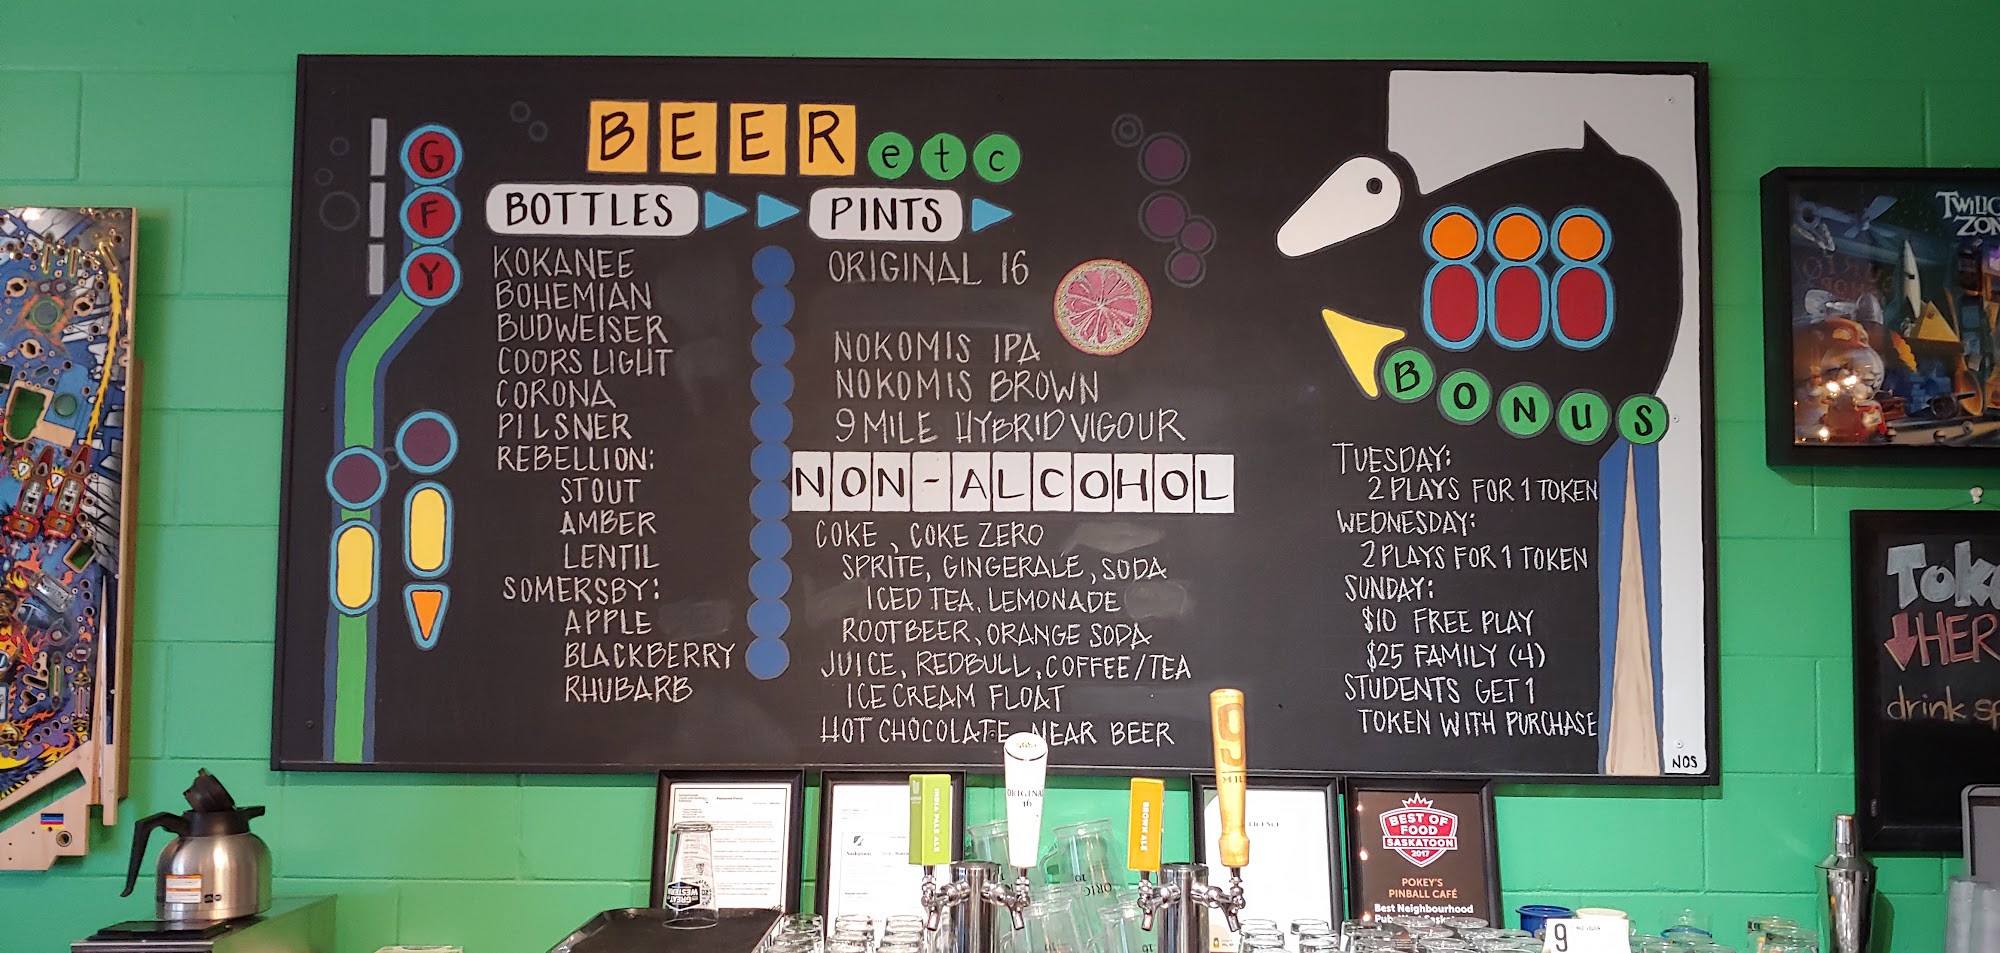 BEER etc
G
F
Y
BOTTLES
KOKANEE
BOHEMIAN
BUDWEISER
COORS LIGHT
CORONA
PILSNER
REBELLION:
STOUT
AMBER
LENTIL
SOMERSBY:
APPLE
BLACKBERRY
RHUBARB
PINTS
ORIGINAL 16
NOKOMIS IPA
NOKOMIS BROWN
9 MILE HYBRID VIGOUR
NON-ALCOHOL
COKE, COKE ZERO
SPRITE, GINGERALE, SODA
ICED TEA, LEMONADE
ROOTBEER, ORANGE SODA
JUICE, REDBULL, COFFEE/TEA
ICE CREAM FLOAT
HOT CHOCOLATE NEAR BEER
BONUS
TUESDAY:
2 PLAYS FOR 1 TOKEN
WEDNESDAY:
2 PLAYS FOR 1 TOKEN
SUNDAY:
$10 FREE PLAY
$25 FAMILY (4)
STUDENTS GET 1
TOKEN WITH PURCHASE
NOS
INDIA PALE ALE
ORIGINAL
16
BROWN ALE
9
MILE
LICENCE
GREAT
WESTERN
BEST OF
FOOD
SASKATOON
2017
POKEY'S
PINBALL CAFÉ
Best Neighbourhood
9
drink